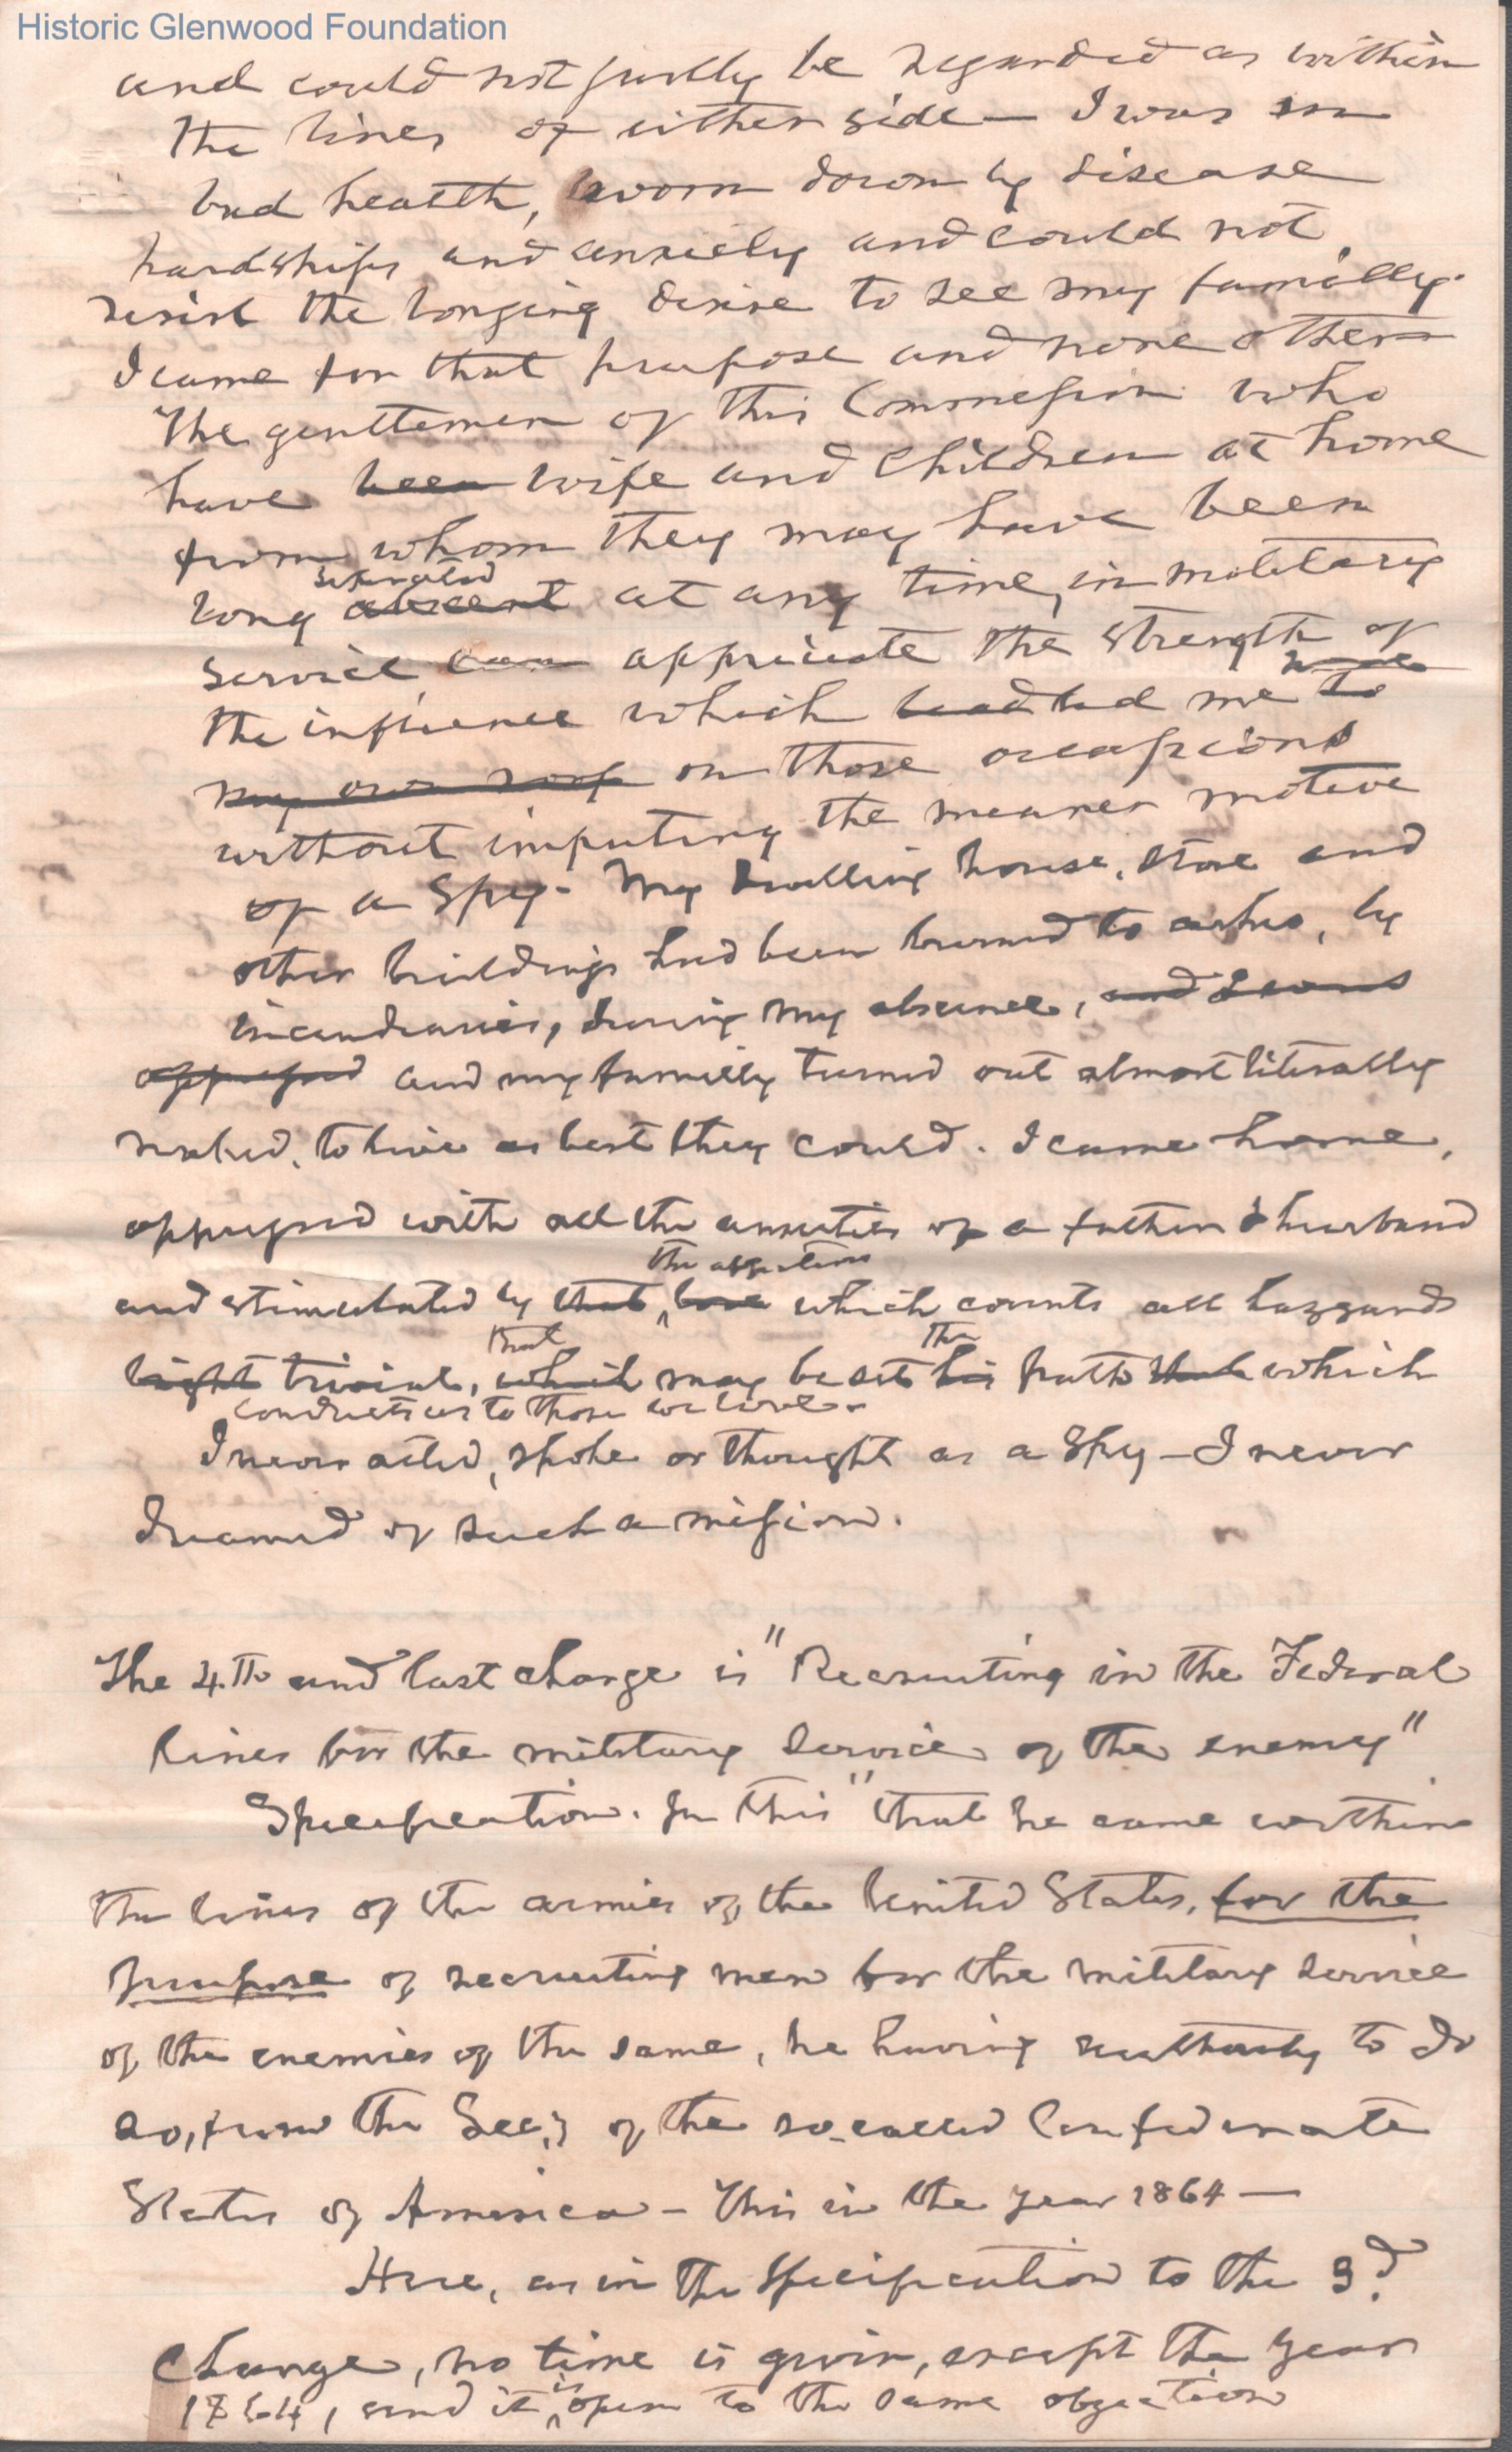 Historic Glenwood Foundation
and could not justly be regarded as within
the lines of either side — I was in
bad health, worn down by disease
hardships and anxiety and could not
resist the longing desire to see my familly.
I came for that purpose and none other
The genttemen of this Commission who
have been wife and children at home
from whom they may have been
separated
long abscent at any time, in military
service can appriciate the strength of
the influence which lead led me to
my own roof on those occassions
without imputing the meaner motive
of a Spy - My dwelling house, store and
other buildings had been burned to ashes, by
incendiaries, during my absence, and I was
oppressed and my familly turned out almost literally
naked, to live as best they could. I came home,
oppressed with all the anxieties of a father & husband
the affection
and stimulated by that love which counts all hazzards
that the
light trivial, which may beset his path that which
conducts us to those we love -
I never acted, spoke or thought as a Spy - I never
dreamed of such a mission.
The 4.th and last charge is "Recruiting in the Federal
lines for the military service of the enemy"
Specification. In this "that he came within
the lines of the armies of the United States, for the
purpose of recruiting men for the military service
of the enemies of the same, he having authority to do
so, from the Sec.y of the so-called Confederate
States of America - This in the year 1864 —
Here, as in the Specification to the 3d
Charge, no time is given, except the year
is
1864, and it open to the same objection